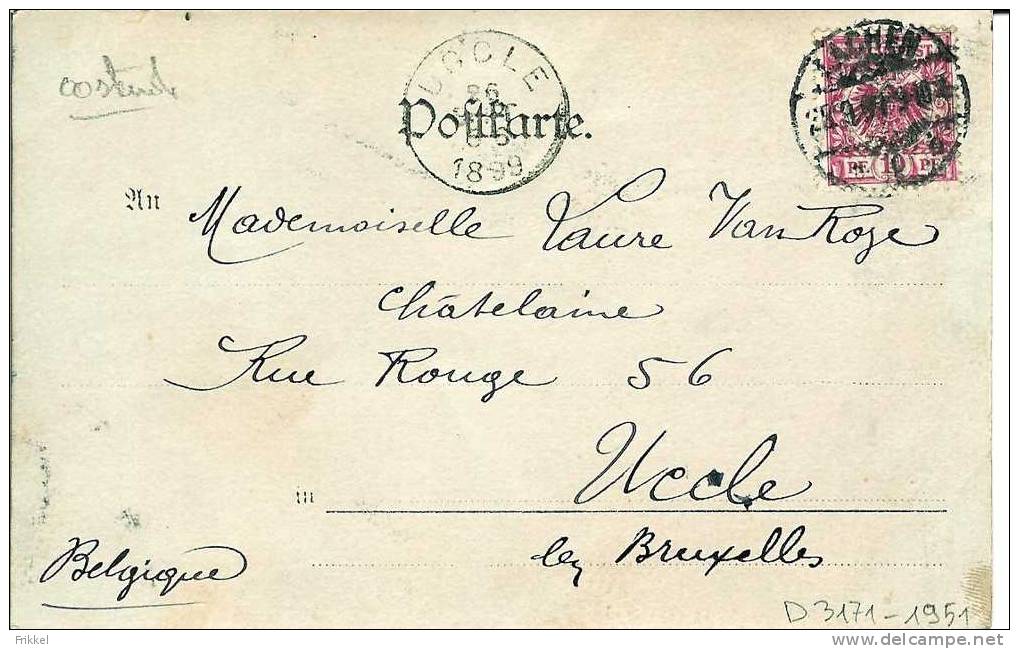 oostende
UCCLE
26
1899
AACHEN
10
PF. PF.
Postkarte.
An Mademoiselle Laure Van Roze
Châtelaine
Rue Rouge 56
in Uccle
lez Bruxelles
Belgique
D3171-1951
Frikkel
www.delcampe.net